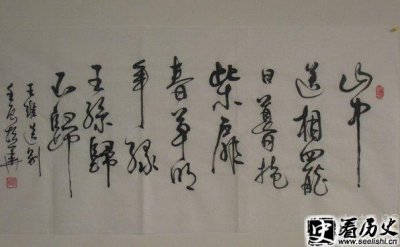 山中
送相罷
日暮掩
柴扉
春草明
年綠
王孫歸
不歸
王維送別
看历史
www.seelishi.cn